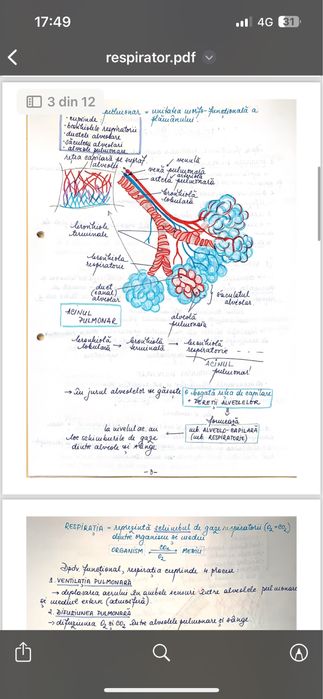 17:49
4G
31
respirator.pdf
3 din 12
pulmonar = unitatea morfo-funcțională a
plămânului.
cuprinde:
- bronhiolele respiratorii
- ductele alveolare
- săculeți alveolari
- alveole pulmonare
rețea capilară pe supraf.
alveolei
venulă
venă pulmonară
arteriolă
artera pulmonară
bronhiolă
lobulară
bronhiole
terminale
bronhiole
respiratorii
duct
(canal)
alveolar
săculețul
alveolar
alveolă
pulmonară
ACINUL
PULMONAR
bronhiolă
lobulară → bronhiolă
terminală → bronhiolă
respiratorie
ACINUL
pulmonar
→ În jurul alveolelor se găsește o bogată rețea de capilare
+ PEREȚII ALVEOLELOR
formează
mb ALVEOLO-CAPILARĂ
(mb RESPIRATORIE)
la nivelul ei au
loc schimburile de gaze
dintre alveole și sânge
-3-
RESPIRAȚIA - reprezintă schimbul de gaze respiratorii (O2 și CO2)
dintre organism și mediu
ORGANISM CO2 O2 MEDIU
Dpdv funcțional, respirația cuprinde 4 procese:
1. VENTILAȚIA PULMONARĂ
→ deplasarea aerului în ambele sensuri între alveolele pulmonare
și mediul extern (atmosferă)
2. DIFUZIUNEA PULMONARĂ
→ difuziunea O2 și CO2 între alveolele pulmonare și sânge